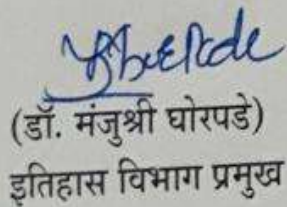 (डॉ. मंजुश्री घोरपडे)
इतिहास विभाग प्रमुख